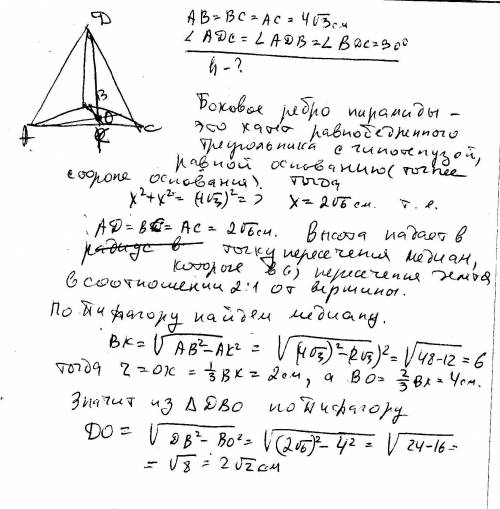 D
B
O
A
K
C
AB=BC=AC=4√3см
∠ADC=∠ADB=∠BDC=900
h-?
Боковое ребро пирамиды -
это катет равнобедренного
треугольника с гипотенузой,
равной основанию (точнее
стороне основания). Тогда
x²+x²=(4√3)² => x=2√6 см. т.е.
AD=BC=AC=2√6см. Высота падает в
радиус в точку пересечения медиан,
которые в пересечения
в соотношении 2:1 от вершины.
По Пифагору найдем медиану.
BK=√AB²-AK² = √(4√3)²-(2√3)² = √48-12 = 6
тогда r=OK=⅓BK=2см, а BO=⅔BK=4см.
Значит из ΔDBO по Пифагору
DO=√DB²-BO² = √(2√6)²-4² = √24-16 =
=√8=2√2 см